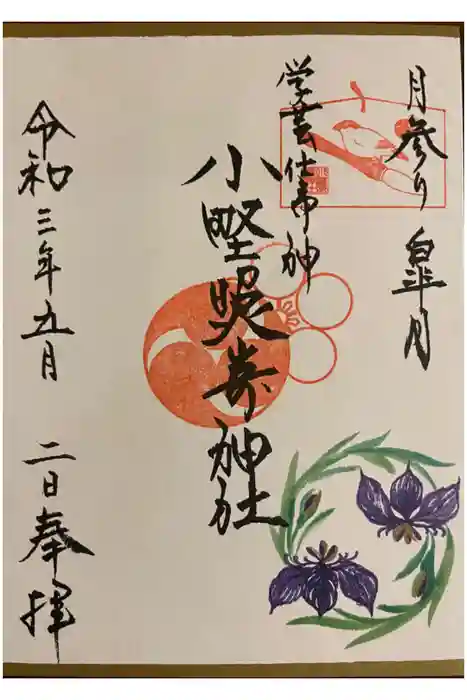 月参り 皐月
学芸仕事神
小野照崎神社
令和三年五月二日奉拝